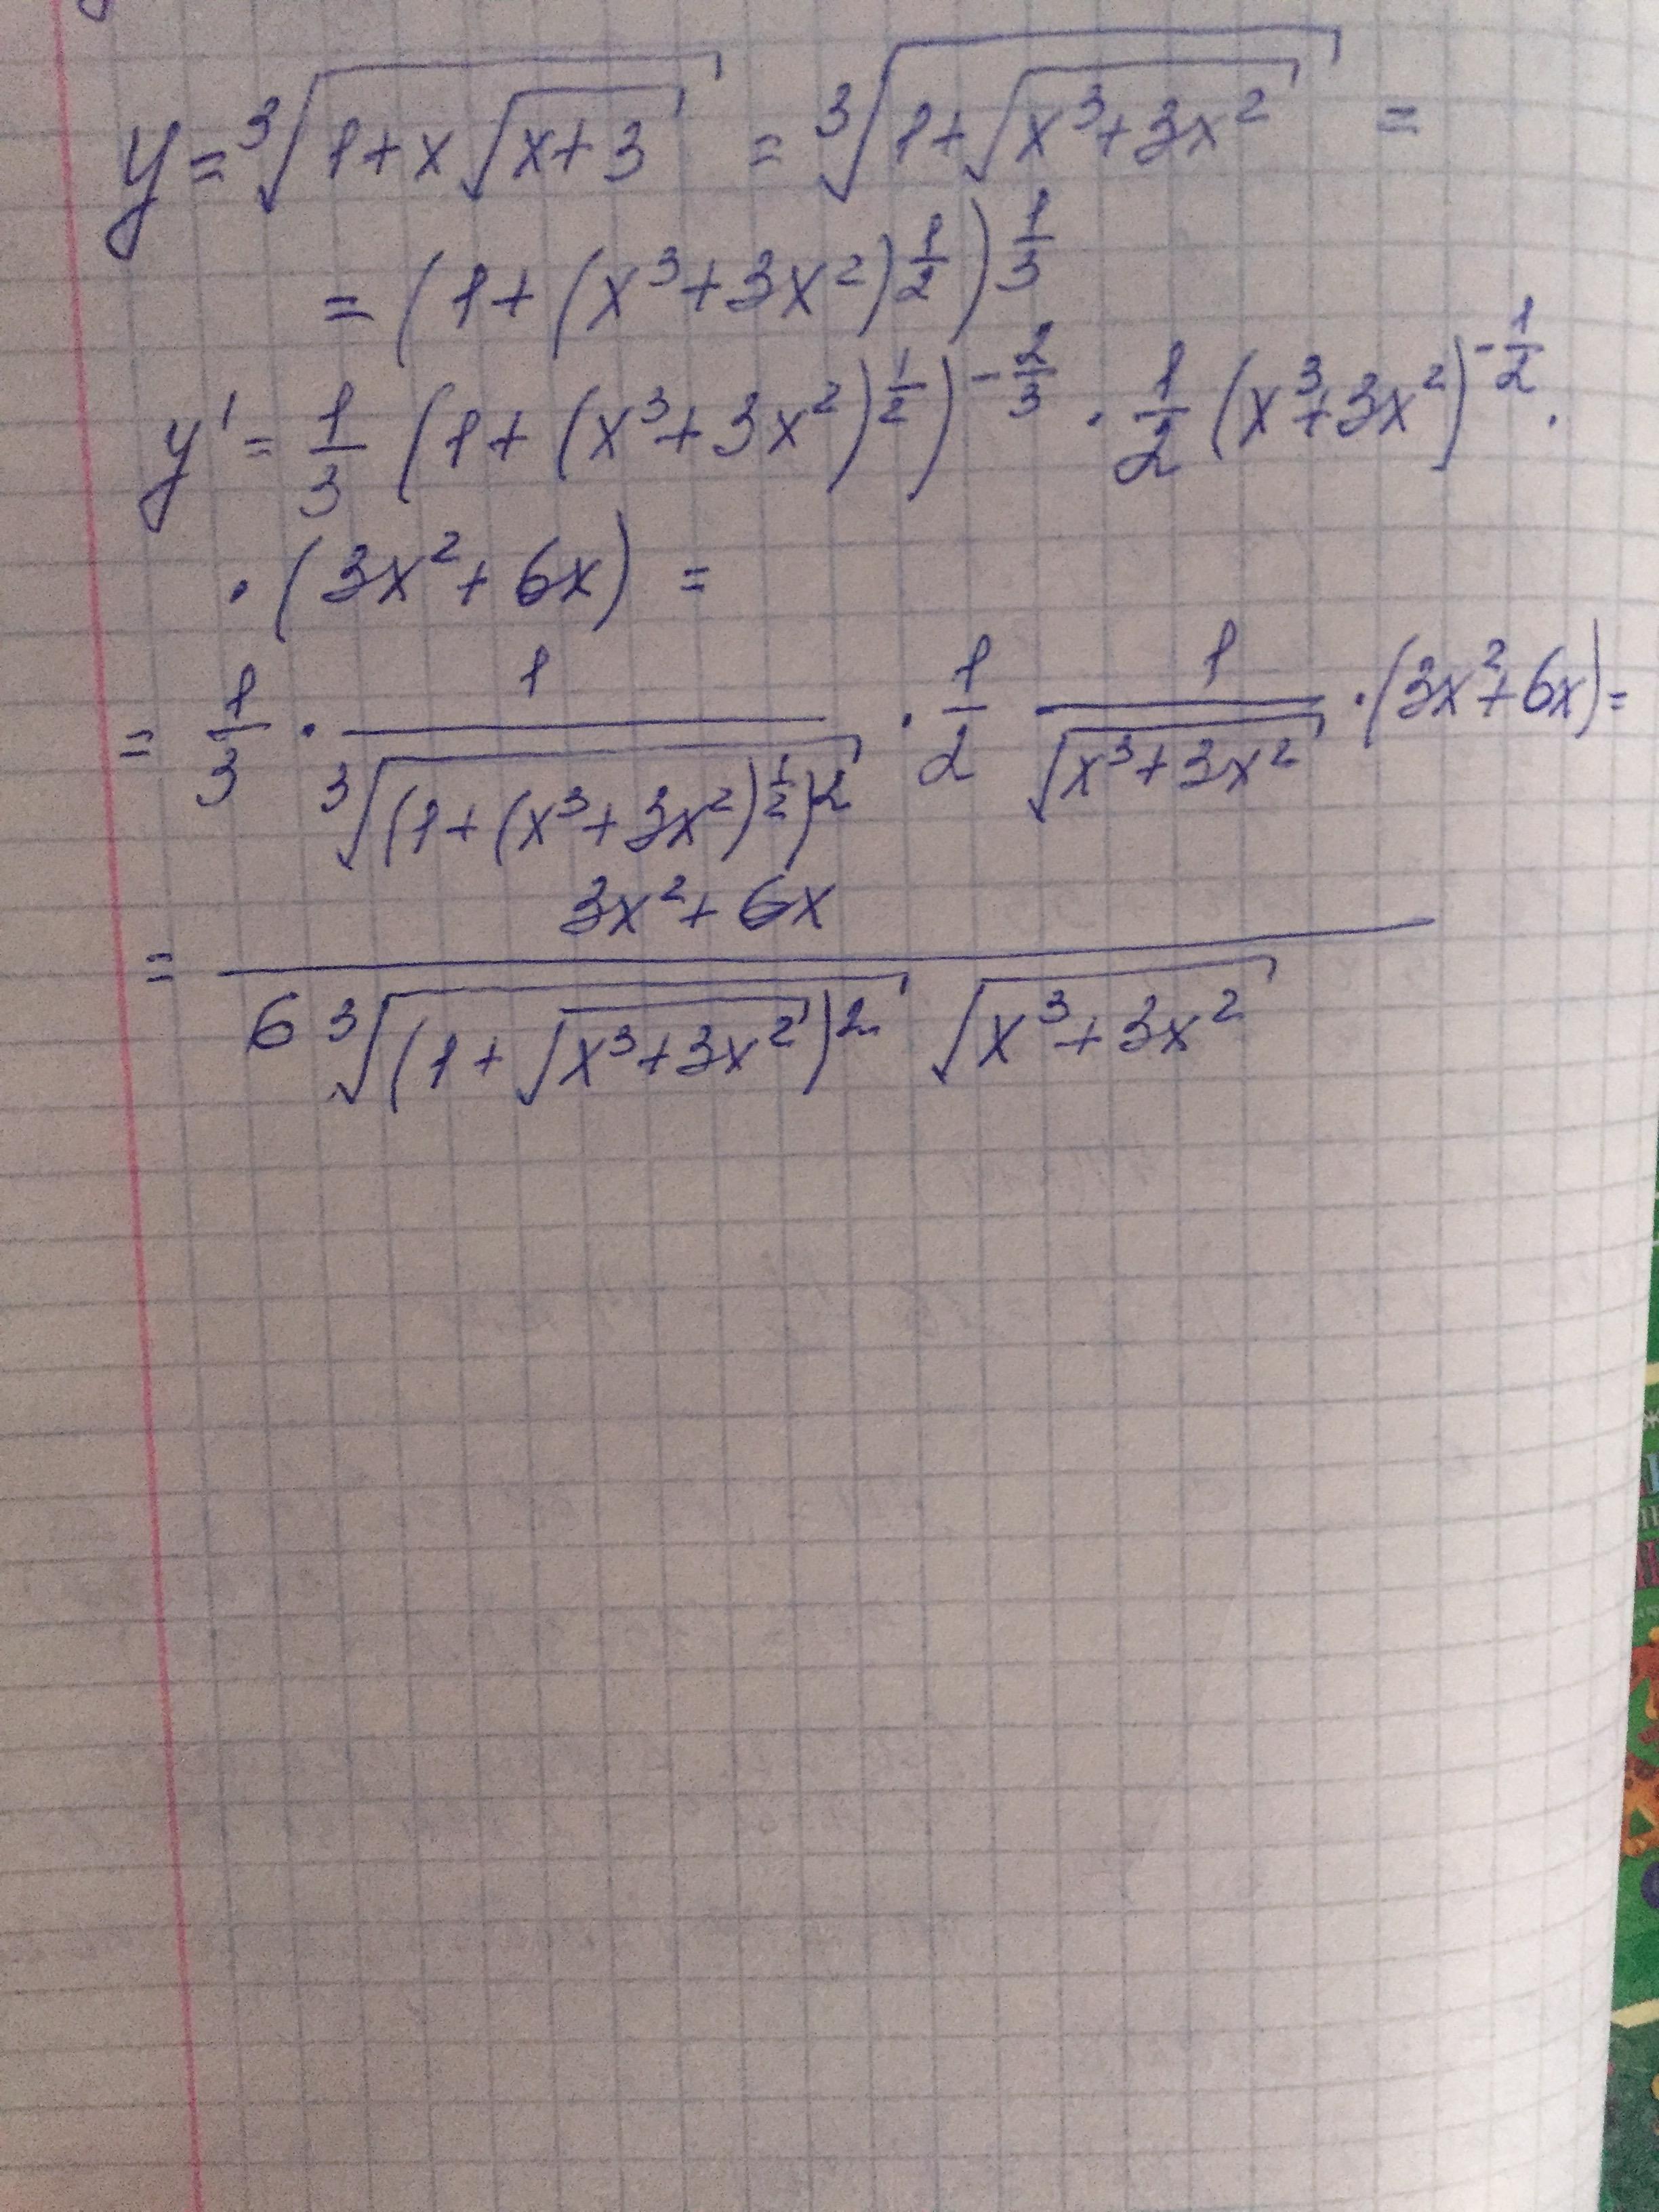 y = ∛(1+x√(x+3)) = ∛(1+√(x³+3x²)) =
= (1+(x³+3x²)^(1/2))^(1/3)
y' = 1/3 (1+(x³+3x²)^(1/2))^(-2/3) · 1/2 (x³+3x²)^(-1/2) ·
· (3x²+6x) =
= 1/3 · 1/∛((1+(x³+3x²)^(1/2))²) · 1/2 1/√(x³+3x²) · (3x²+6x) =
= (3x²+6x)/(6 ∛((1+√(x³+3x²))²) √(x³+3x²))